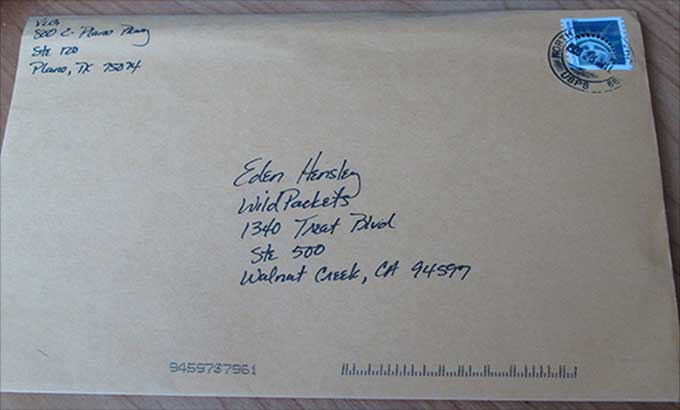 800 E. Plano Pkwy
Ste 120
Plano, TX 75074
NORTH
USPS
Eden Hensley
WildPackets
1340 Treat Blvd
Ste 500
Walnut Creek, CA 94597
94597$7961